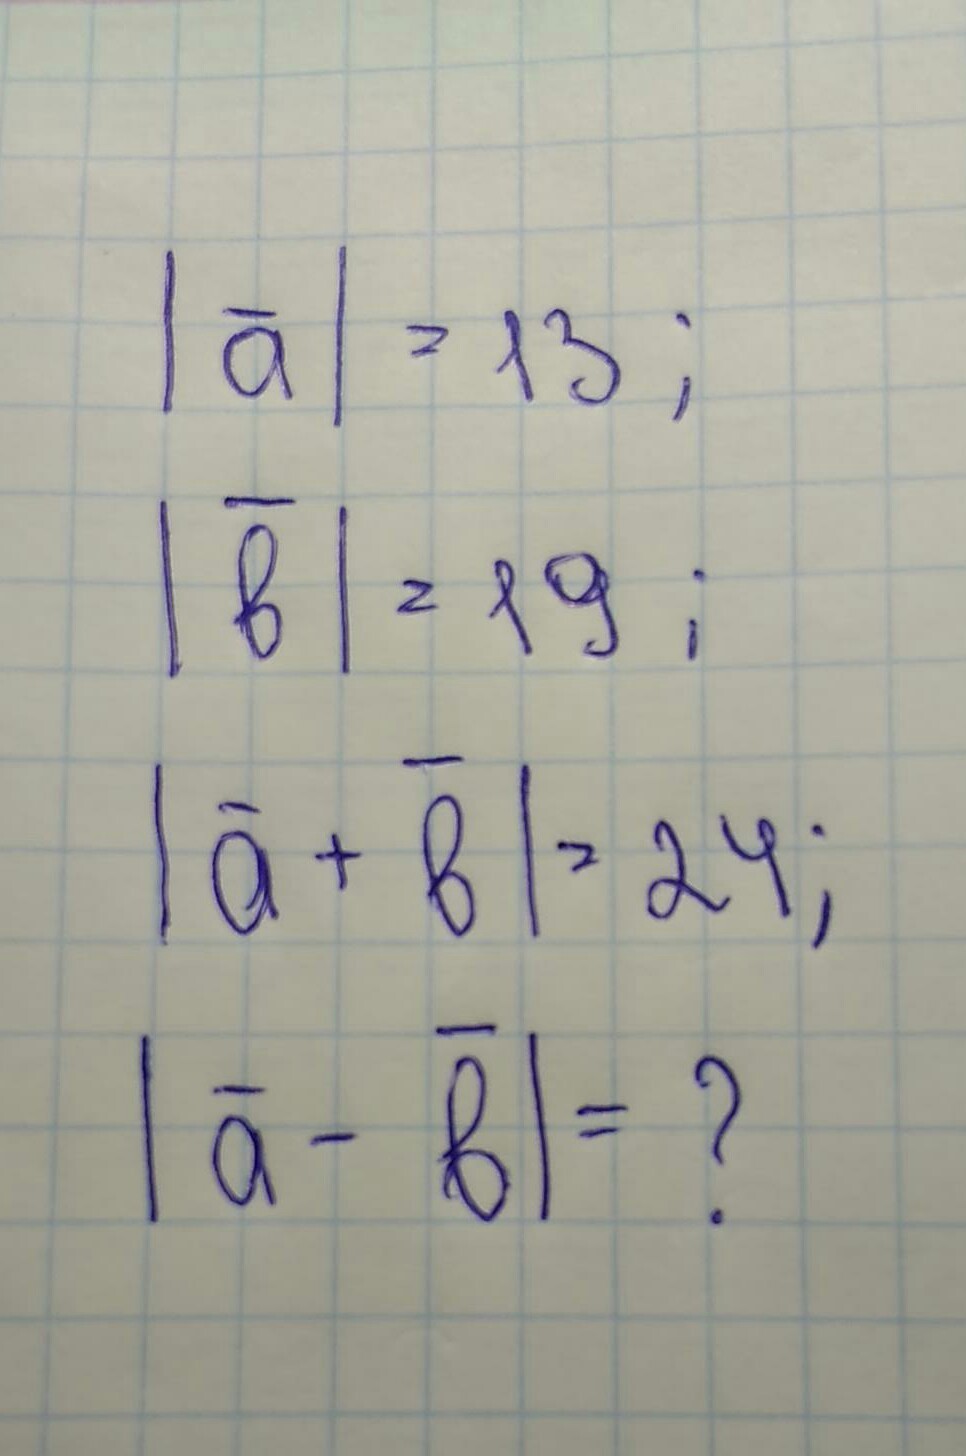 |a̅| = 13;
|b̅| = 19;
|a̅ + b̅| = 24;
|a̅ - b̅| = ?